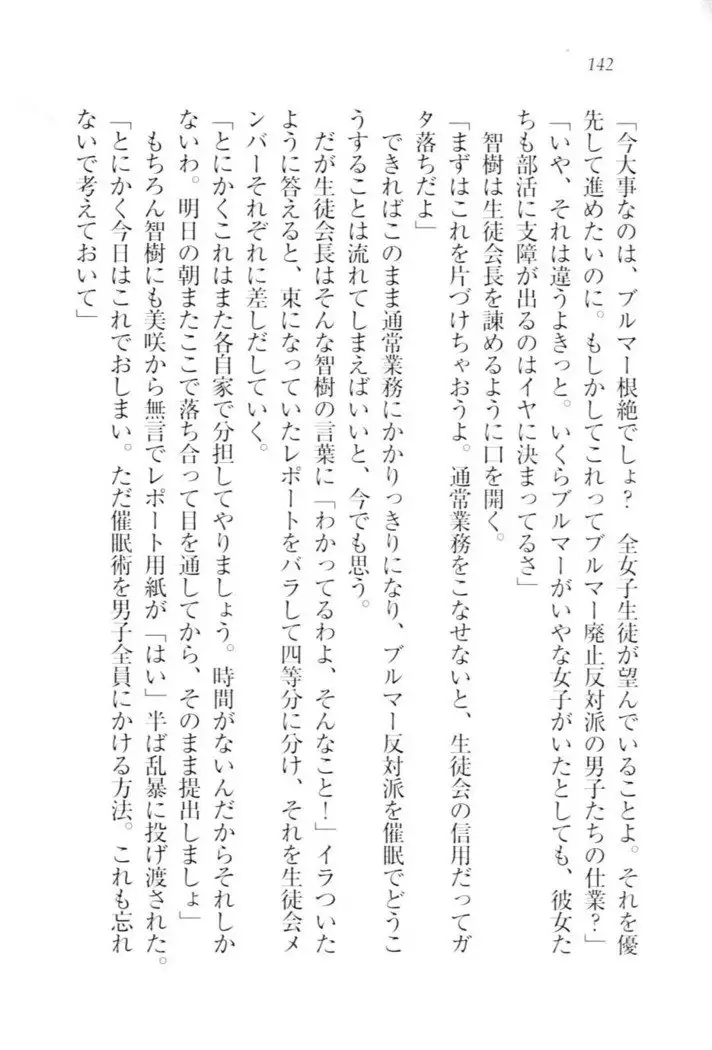 142
「今大事なのは、ブルマー根絶でしょ？　全女子生徒が望んでいることよ。それを優
先して進めたいのに。もしかしてこれってブルマー廃止反対派の男子たちの仕業？」
「いや、それは違うよきっと。いくらブルマーがいやな女子がいたとしても、彼女た
ちも部活に支障が出るのはイヤに決まってるさ」
　智樹は生徒会長を諫めるように口を開く。
「まずはこれを片づけちゃおうよ。通常業務をこなせないと、生徒会の信用だってガ
タ落ちだよ」
　できればこのまま通常業務にかかりっきりになり、ブルマー反対派を催眠でどうこ
うすることは流れてしまえばいいと、今でも思う。
　だが生徒会長はそんな智樹の言葉に「わかってるわよ、そんなこと！」イラついた
ように答えると、束になっていたレポートをバラして四等分に分け、それを生徒会メ
ンバーそれぞれに差しだしていく。
「とにかくこれはまた各自家で分担してやりましょう。時間がないんだからそれしか
ないわ。明日の朝またここで落ち合って目を通してから、そのまま提出しましょ」
　もちろん智樹にも美咲から無言でレポート用紙が「はい」半ば乱暴に投げ渡された。
「とにかく今日はこれでおしまい。ただ催眠術を男子全員にかける方法。これも忘れ
ないで考えておいて」